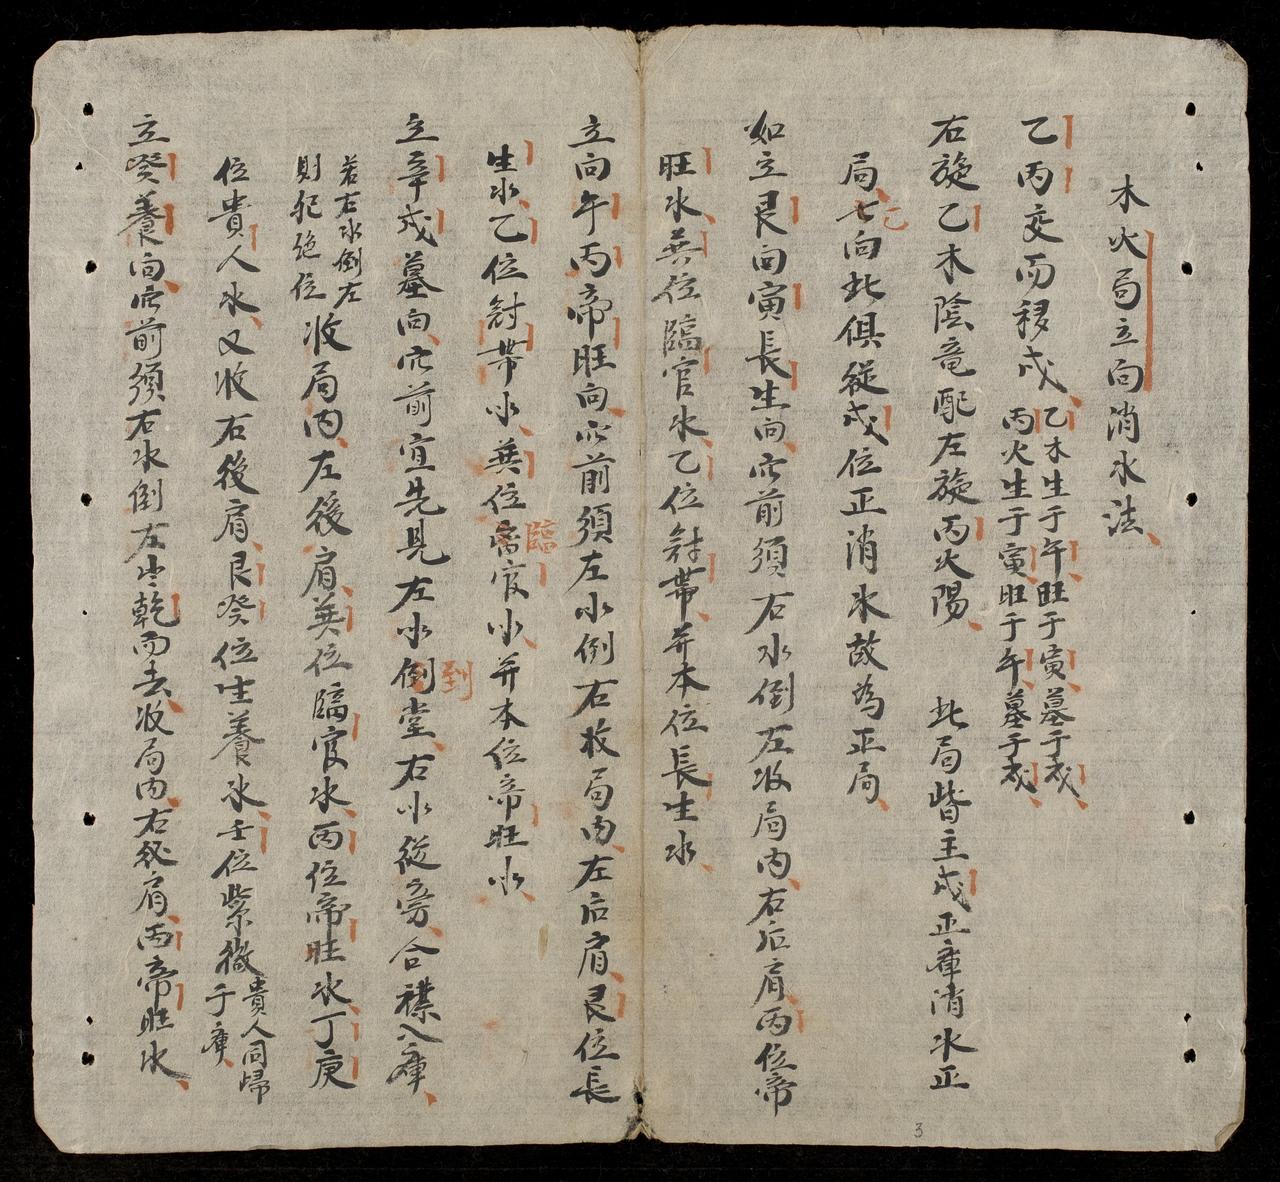 木火局立向消水法
乙丙交而移戍
乙木生于午旺于寅墓于戍
丙火生于寅旺于午墓于戍
右旋乙木陰竜配左旋丙火陽 此局皆主戍正庫消水正
局七向此俱從戍位正消水故為正局
乙
如立艮向寅長生向穴前須右水倒左收局内右后肩丙位帝
旺水巽位臨官水乙位冠帶并本位長生水
立向午丙帝旺向穴前須左水倒右收局内左后肩艮位長
生水乙位冠帶水巽位官水并本位帝旺水
臨
立辛戍墓向穴前宜先見左水倒堂右水從旁合襟入庫
到
若右水倒左
則犯絶位
收局内左後肩巽位臨官水丙位帝旺水丁庚
位貴人水又收右後肩艮癸位生養水壬位紫微
貴人同歸
于庫
立癸養向穴前須右水倒左乾而去收局内右後肩丙帝旺水
3